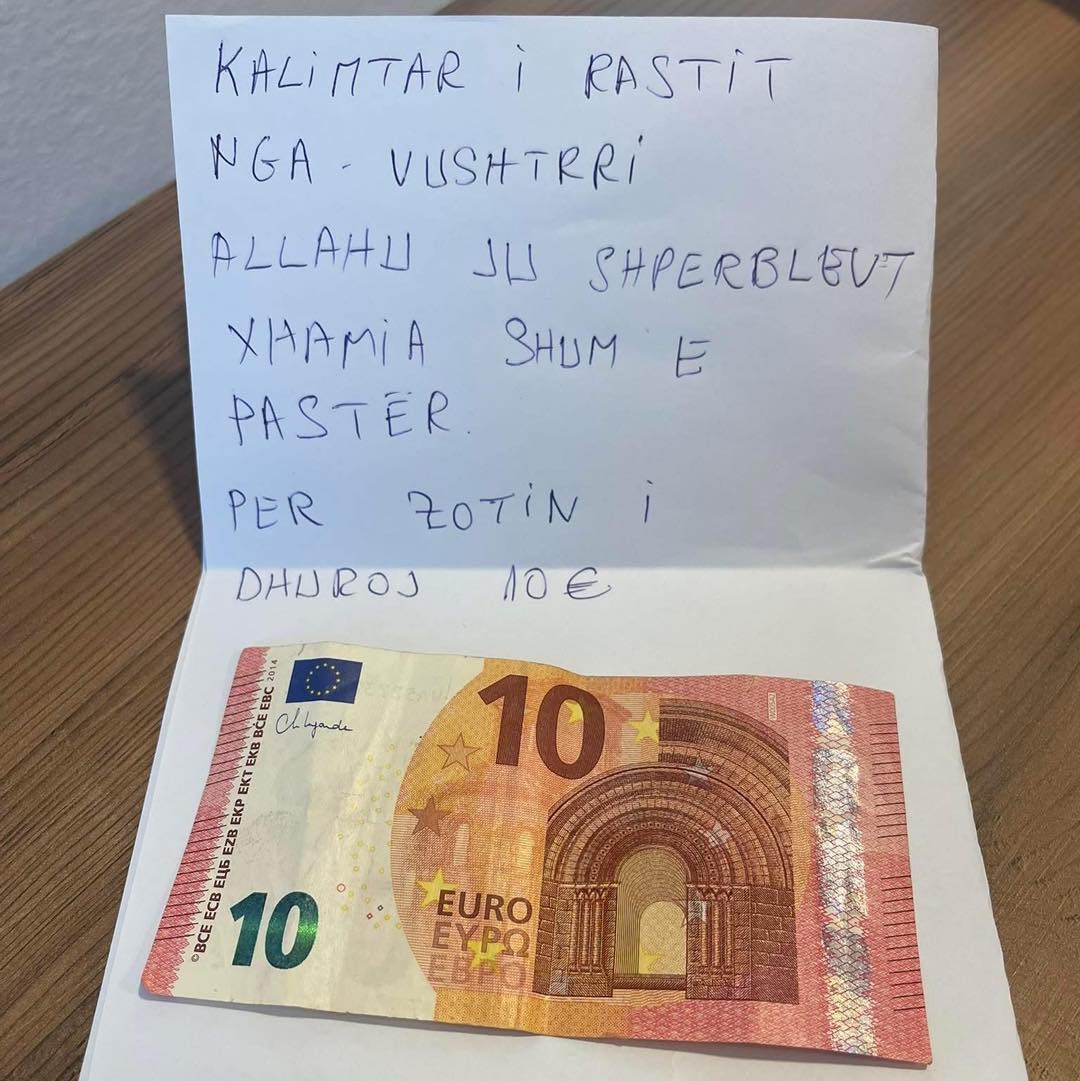 KALIMTAR I RASTIT
NGA - VUSHTRRI
ALLAHU JU SHPERBLEVT
XHAMIA SHUM E
PASTËR.
PER ZOTIN I
DHUROJ 10 €
©BCE ECB ЕЦБ EZB EKP EKT EKB BĊE EBC 2014
10
10
EURO
ΕΥΡΩ
ЕВРО